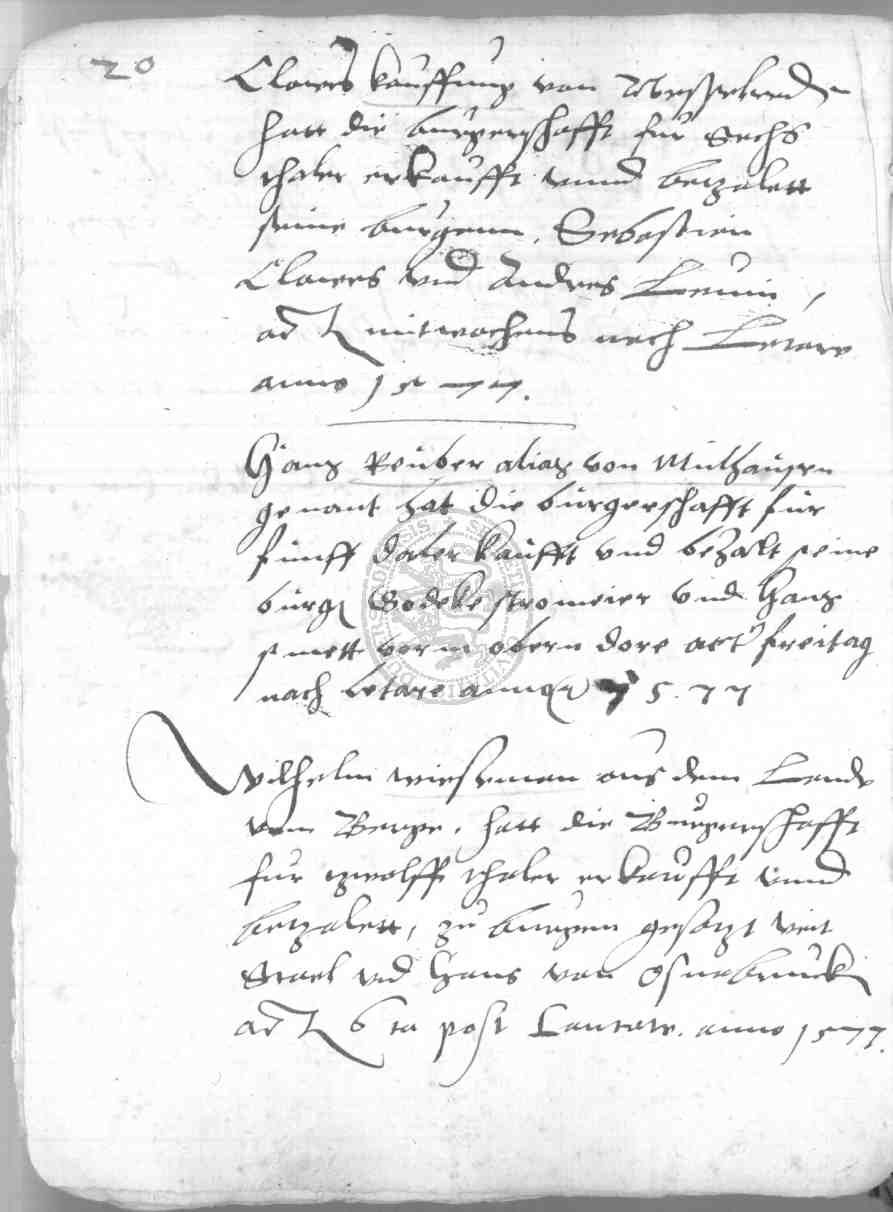 20
Clawes kauffung von Weßelreden
hatt die burgerschafft fur Sechs
thaler erkaufft vnnd betzalett
seine burgenn, Sebastian
Clawes vnd Andres
act mitwochens nach Letare
anno 1577.
Hans Reuber alias von Mulhausen
genant hat die burgerschafft für
fünff daler kaufft vnd bezalt seine
burg Godeke stromeier vnd Hans
smett vorm obern dore act freitag
nach letare anno 1577
Wilhelm wieseman aus dem Lande
vom Berge, hatt die Burgerschafft
fur zwolff thaler erkaufft vnnd
betzalett, zu burgen gesatzt veit
Stael vnd Hans von Osnabruck
act 6 ta post Cantate. anno 1577.